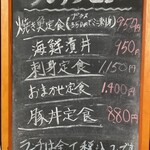 焼き魚定食 950円
海鮮漬丼 950円
刺身定食 1150円
おまかせ定食 1,400円
豚丼定食 880円
ランチは全て税込